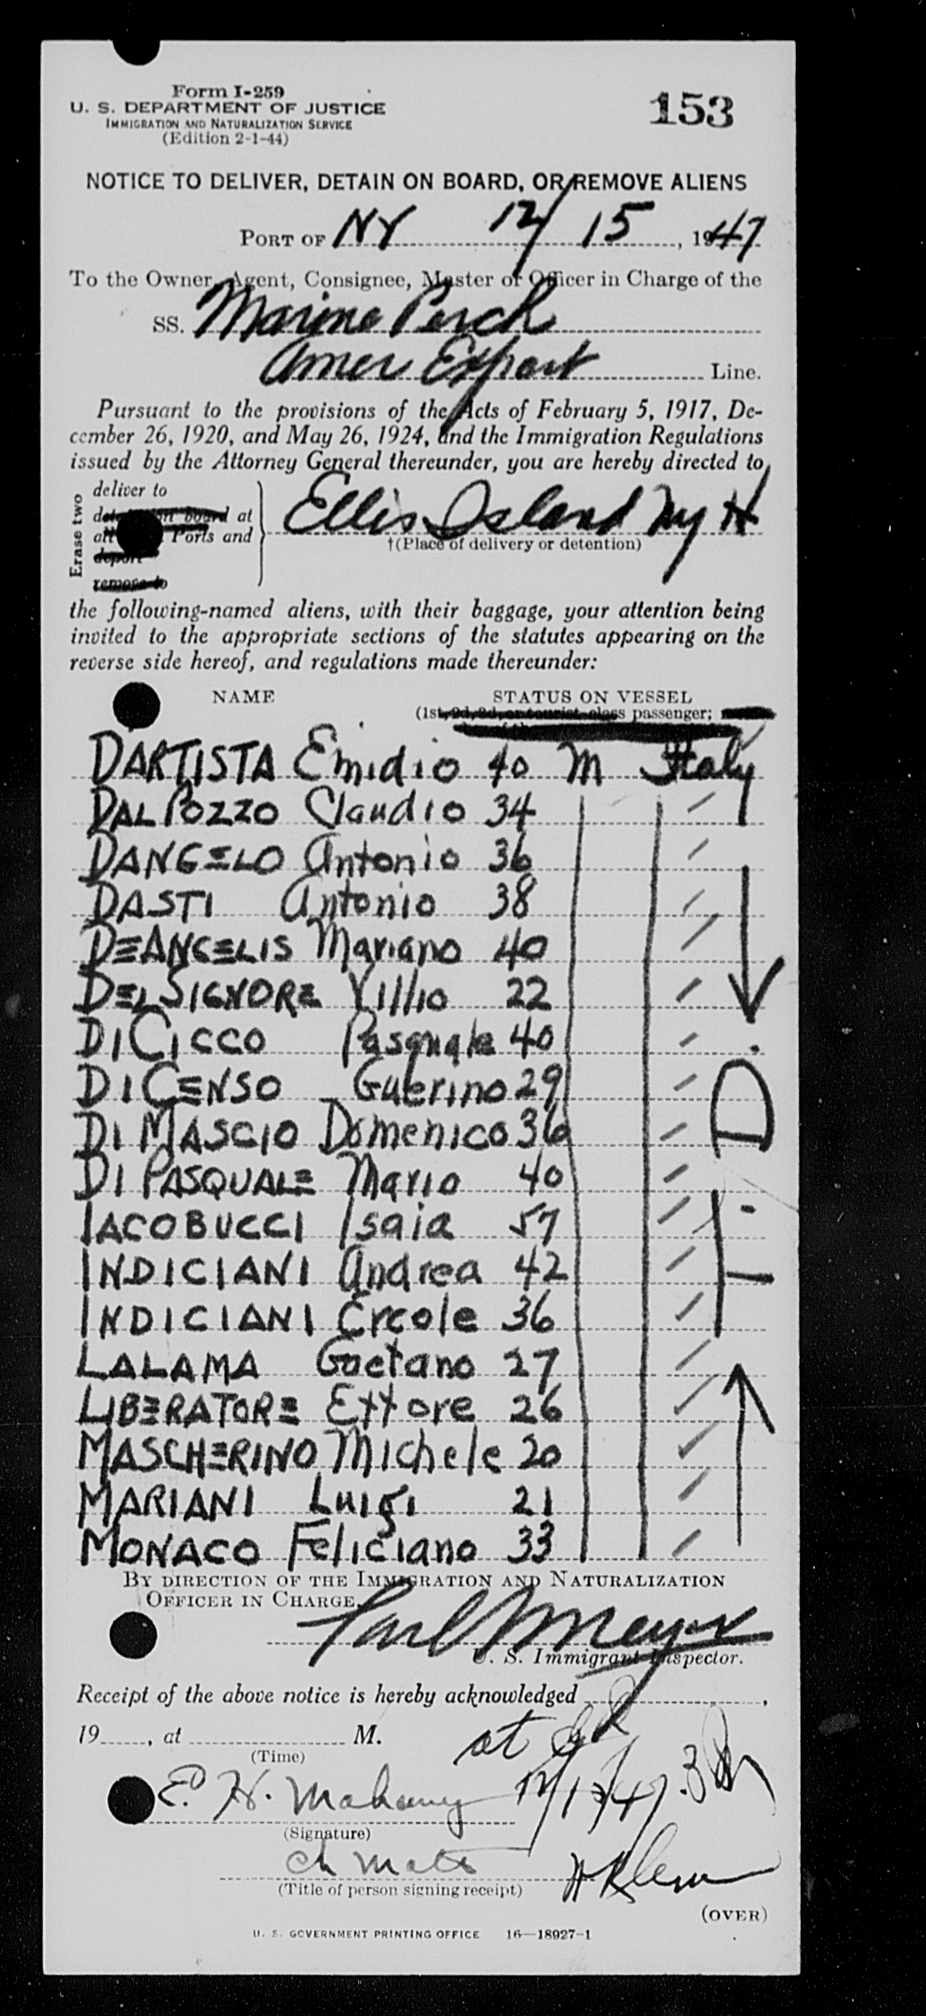 Form I-259
U. S. DEPARTMENT OF JUSTICE
IMMIGRATION AND NATURALIZATION SERVICE
(Edition 2-1-44)
153
NOTICE TO DELIVER, DETAIN ON BOARD, OR REMOVE ALIENS
PORT OF NY 12/15, 1947
To the Owner, Agent, Consignee, Master or Officer in Charge of the
SS. Marine Perch
Amer Export Line.
Pursuant to the provisions of the Acts of February 5, 1917, De-
cember 26, 1920, and May 26, 1924, and the Immigration Regulations
issued by the Attorney General thereunder, you are hereby directed to
Erase two
deliver to
board at
Ports and
deport
remove to
Ellis Island NYH
†(Place of delivery or detention)
the following-named aliens, with their baggage, your attention being
invited to the appropriate sections of the statutes appearing on the
reverse side hereof, and regulations made thereunder:
NAME STATUS ON VESSEL
(1st, 2d, 3d, or tourist-class passenger;
DARTISTA Emidio 40 M Italy
DAL POZZO Claudio 34
DANGELO Antonio 36
DASTI Antonio 38
DEANGELIS Mariano 40
DELSIGNORE Villio 22
DICICCO Pasquale 40
DICENSO Guerino 29
DI MASCIO Domenico 36
DI PASQUALE Mario 40
IACOBUCCI Isaia 57
INDICIANI Andrea 42
INDICIANI Ercole 36
LALAMA Gaetano 27
LIBERATORE Ettore 26
MASCHERINO Michele 20
MARIANI Luigi 21
MONACO Feliciano 33
T.D.
BY DIRECTION OF THE IMMIGRATION AND NATURALIZATION
OFFICER IN CHARGE.
Meyer
U. S. Immigrant Inspector.
Receipt of the above notice is hereby acknowledged ,
19 , at M.
(Time)
at
E. H. Mahaney
(Signature)
ch mate
(Title of person signing receipt)
(OVER)
U. S. GOVERNMENT PRINTING OFFICE 16—18927-1